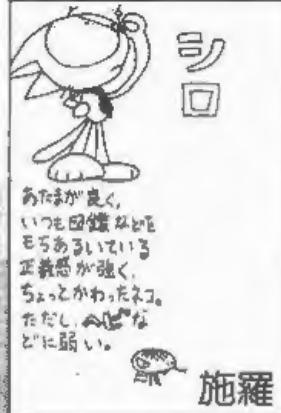 シロ
あたまが良く、
いつも図鑑などを
もちあるいている
正義感が強く、
ちょっとかわったネコ。
ただし、ヘビな
どに弱い。
施羅